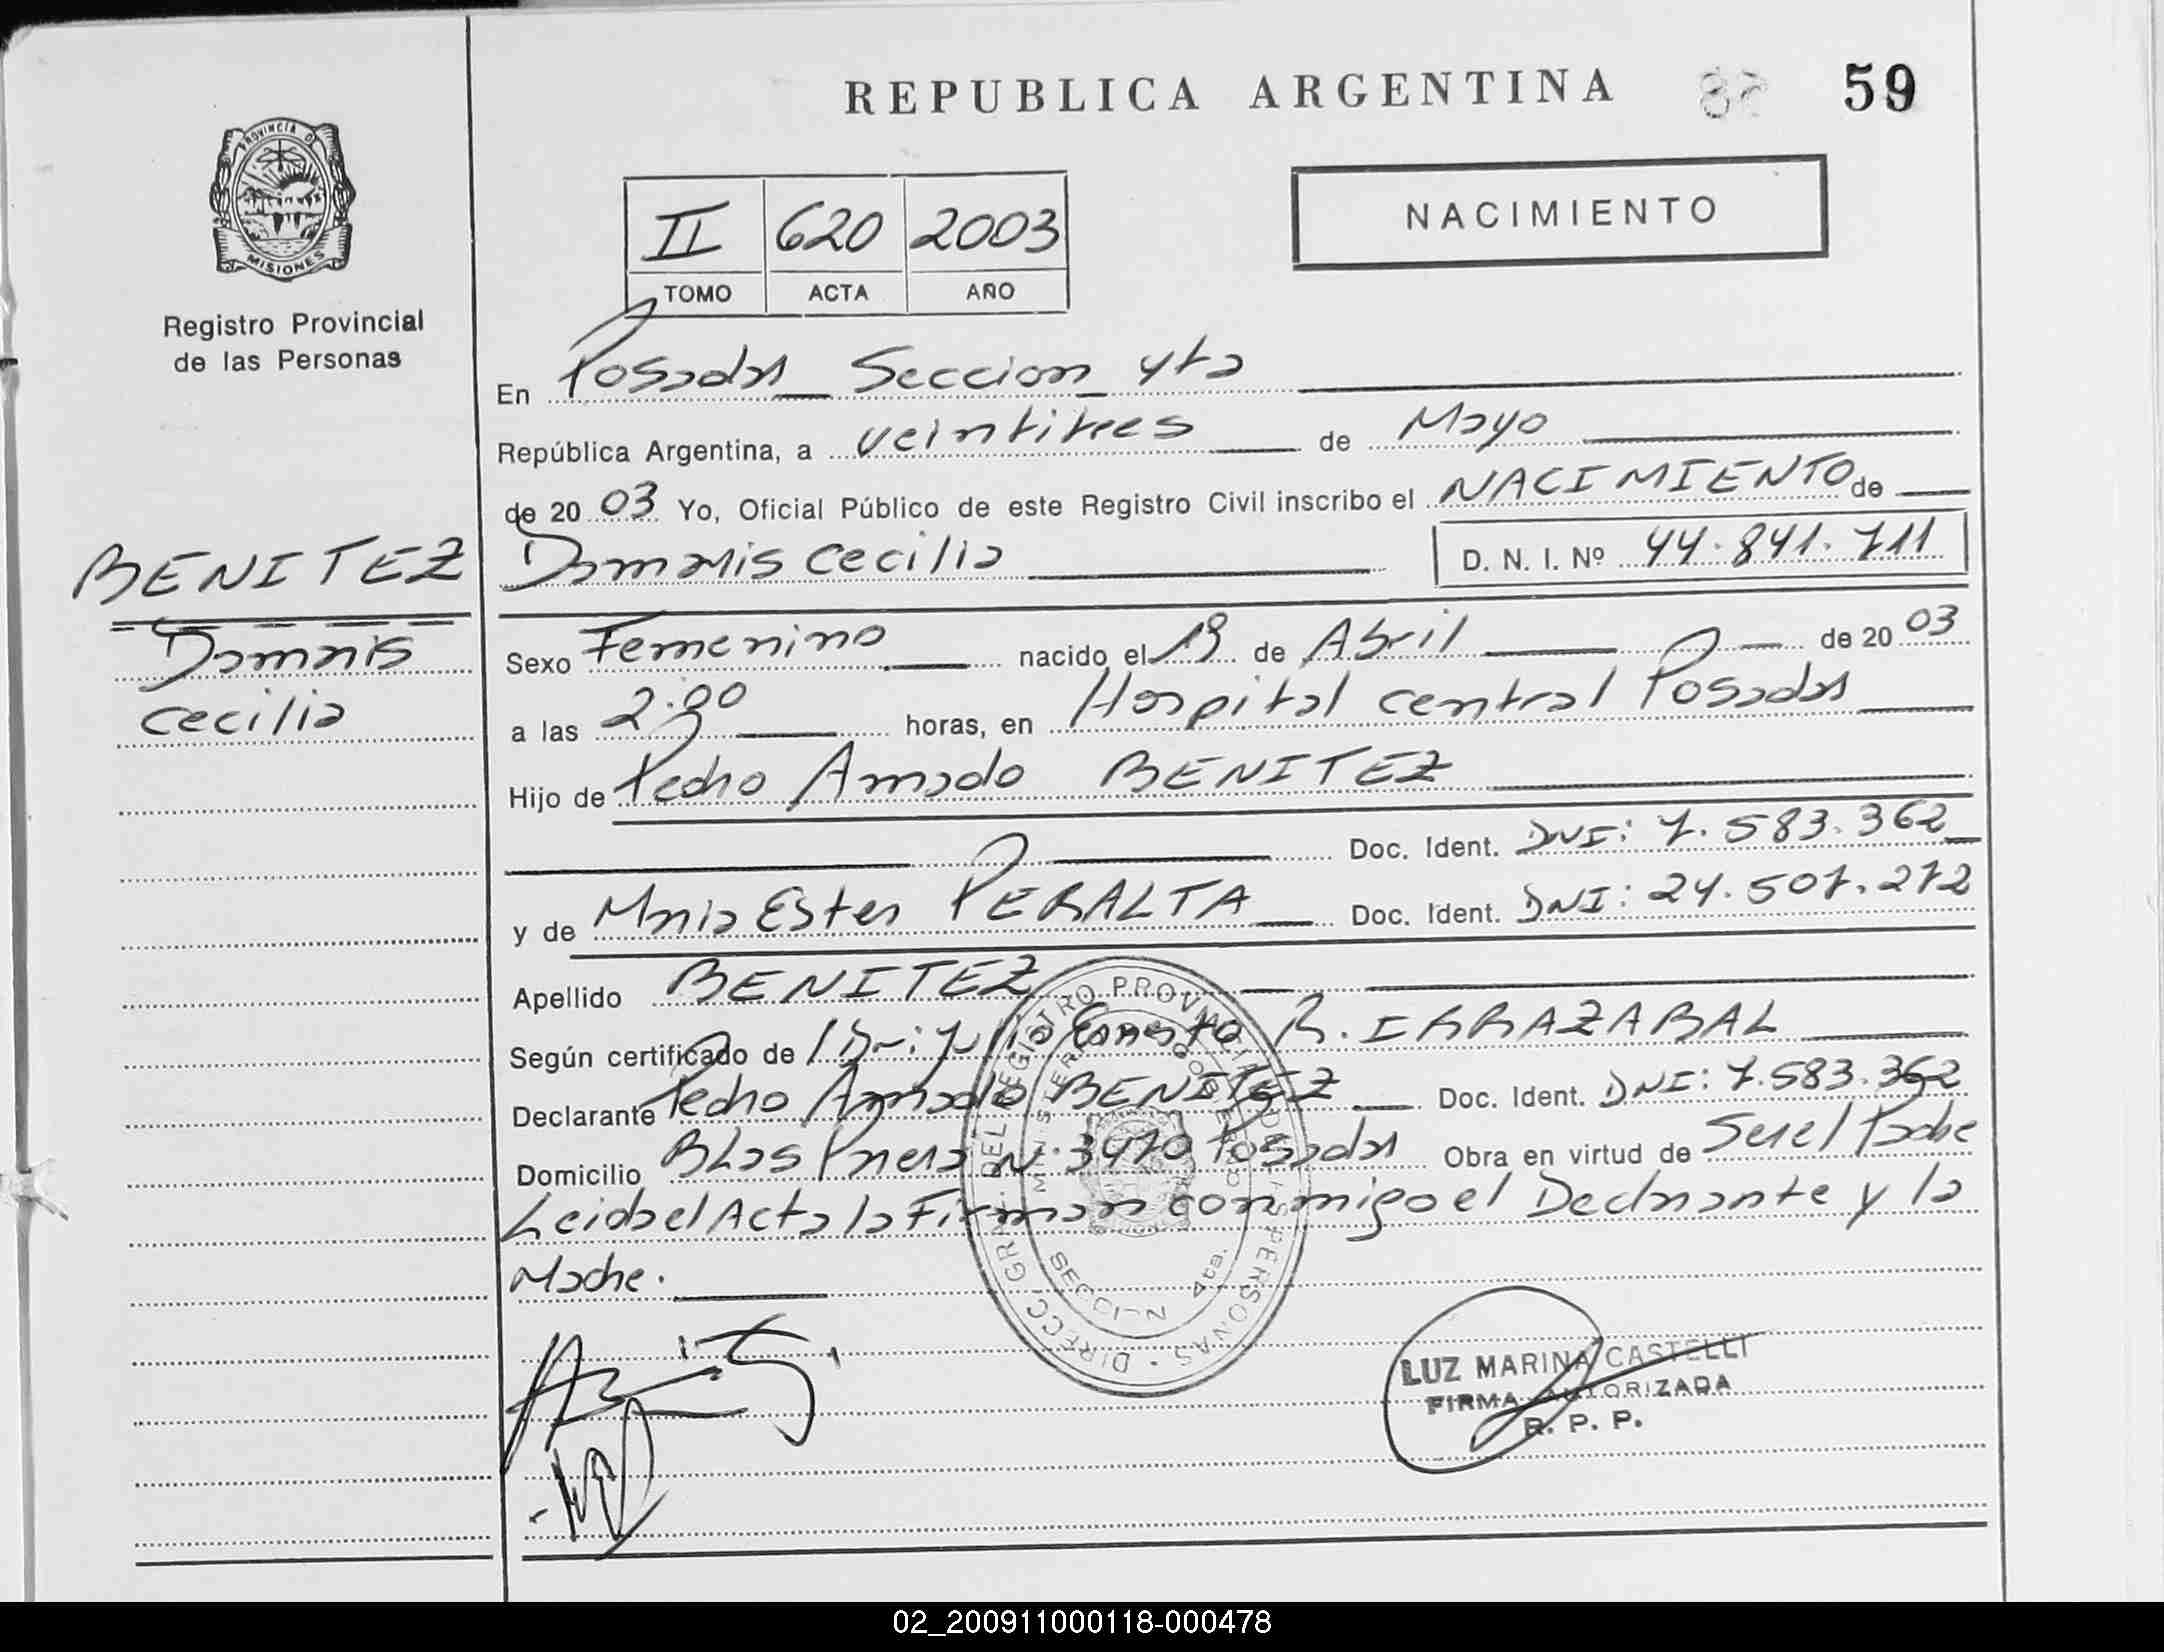 REPUBLICA ARGENTINA 59
PROVINCIA DE
MISIONES
Registro Provincial
de las Personas
NACIMIENTO
II 620 2003
TOMO ACTA AÑO
En Posadas Seccion 4ta
República Argentina, a veintitres de Mayo
de 20 03 Yo, Oficial Público de este Registro Civil inscribo el NACIMIENTO de
BENITEZ
Damaris Cecilia D. N. I. Nº 44.841.711
Damaris
Cecilia
Sexo Femenino nacido el 19 de Abril de 20 03
a las 2:30 horas, en Hospital central Posadas
Hijo de Pedro Amado BENITEZ
Doc. Ident. DNI: 7.583.362
y de Maria Ester PERALTA Doc. Ident. DNI: 24.507.272
Apellido BENITEZ
Según certificado de Dr: Julio Ernesto R. IRRAZABAL
Declarante Pedro Amado BENITEZ Doc. Ident. DNI: 7.583.362
Domicilio BLas Parera Nº 3470 Posadas Obra en virtud de Ser el Padre
Leida el Acta la Firman conmigo el Declarante y la
Madre.
DIRECC. GRAL. DEL REGISTRO PROVINCIAL DE LAS PERSONAS
SECCION 4ta.
LUZ MARINA CASTELLI
FIRMA AUTORIZADA
R. P. P.
02_200911000118-000478